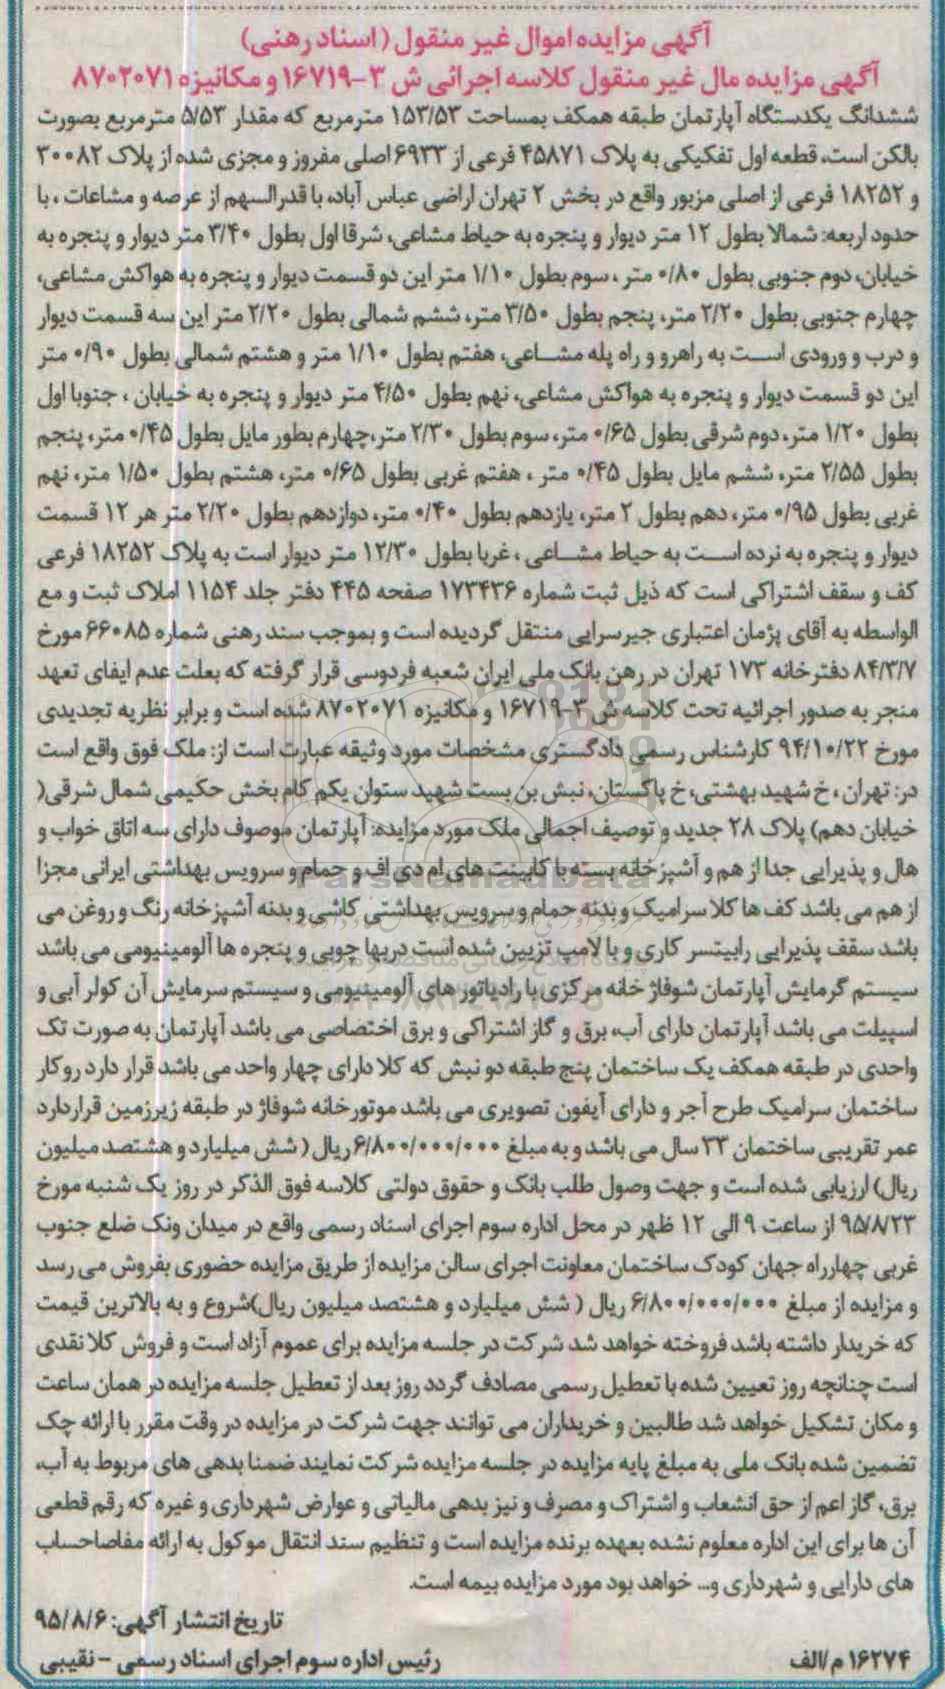 آگهی مزایده اموال غیر منقول (اسناد رهنی)
آگهی مزایده مال غیر منقول کلاسه اجرائی ش ۳-۱۶۷۱۹ و مکانیزه ۸۷۰۲۰۷۱
ششدانگ یکدستگاه آپارتمان طبقه همکف بمساحت ۱۵۳/۵۳ مترمربع که مقدار ۵/۵۳ مترمربع بصورت
بالکن است، قطعه اول تفکیکی به پلاک ۴۵۸۷۱ فرعی از ۶۹۳۳ اصلی مفروز و مجزی شده از پلاک ۳۰۰۸۲
و ۱۸۲۵۲ فرعی از اصلی مزبور واقع در بخش ۲ تهران اراضی عباس آباد، با قدرالسهم از عرصه و مشاعات ، با
حدود اربعه: شمالا بطول ۱۲ متر دیوار و پنجره به حیاط مشاعی، شرقا اول بطول ۳/۴۰ متر دیوار و پنجره به
خیابان، دوم جنوبی بطول ۰/۸۰ متر ، سوم بطول ۱/۱۰ متر این دو قسمت دیوار و پنجره به هواکش مشاعی،
چهارم جنوبی بطول ۲/۲۰ متر، پنجم بطول ۳/۵۰ متر، ششم شمالی بطول ۲/۲۰ متر این سه قسمت دیوار
و درب و ورودی است به راهرو و راه پله مشاعی، هفتم بطول ۱/۱۰ متر و هشتم شمالی بطول ۰/۹۰ متر
این دو قسمت دیوار و پنجره به هواکش مشاعی، نهم بطول ۴/۵۰ متر دیوار و پنجره به خیابان ، جنوبا اول
بطول ۱/۲۰ متر، دوم شرقی بطول ۰/۶۵ متر، سوم بطول ۲/۳۰ متر،چهارم بطور مایل بطول ۰/۴۵ متر، پنجم
بطول ۲/۵۵ متر، ششم مایل بطول ۰/۴۵ متر ، هفتم غربی بطول ۰/۶۵ متر، هشتم بطول ۱/۵۰ متر، نهم
غربی بطول ۰/۹۵ متر، دهم بطول ۲ متر، یازدهم بطول ۰/۴۰ متر، دوازدهم بطول ۲/۲۰ متر هر ۱۲ قسمت
دیوار و پنجره به نرده است به حیاط مشاعی ، غربا بطول ۱۲/۳۰ متر دیوار است به پلاک ۱۸۲۵۲ فرعی
کف و سقف اشتراکی است که ذیل ثبت شماره ۱۷۳۴۳۶ صفحه ۴۴۵ دفتر جلد ۱۱۵۴ املاک ثبت و مع
الواسطه به آقای پژمان اعتباری جیرسرایی منتقل گردیده است و بموجب سند رهنی شماره ۶۶۰۸۵ مورخ
۸۴/۳/۷ دفترخانه ۱۷۳ تهران در رهن بانک ملی ایران شعبه فردوسی قرار گرفته که بعلت عدم ایفای تعهد
منجر به صدور اجرائیه تحت کلاسه ش ۳-۱۶۷۱۹ و مکانیزه ۸۷۰۲۰۷۱ شده است و برابر نظریه تجدیدی
مورخ ۹۴/۱۰/۲۲ کارشناس رسمی دادگستری مشخصات مورد وثیقه عبارت است از: ملک فوق واقع است
در: تهران ، خ شهید بهشتی، خ پاکستان، نبش بن بست شهید ستوان یکم کام بخش حکیمی شمال شرقی(
خیابان دهم) پلاک ۲۸ جدید و توصیف اجمالی ملک مورد مزایده: آپارتمان موصوف دارای سه اتاق خواب و
هال و پذیرایی جدا از هم و آشپزخانه بسته با کابینت های ام دی اف و حمام و سرویس بهداشتی ایرانی مجزا
از هم می باشد کف ها کلا سرامیک و بدنه حمام و سرویس بهداشتی کاشی و بدنه آشپزخانه رنگ و روغن می
باشد سقف پذیرایی رابیتسر کاری و با لامپ تزیین شده است دربها چوبی و پنجره ها آلومینیومی می باشد
سیستم گرمایش آپارتمان شوفاژ خانه مرکزی با رادیاتور های آلومینیومی و سیستم سرمایش آن کولر آبی و
اسپیلت می باشد آپارتمان دارای آب، برق و گاز اشتراکی و برق اختصاصی می باشد آپارتمان به صورت تک
واحدی در طبقه همکف یک ساختمان پنج طبقه دو نبش که کلا دارای چهار واحد می باشد قرار دارد روکار
ساختمان سرامیک طرح آجر و دارای آیفون تصویری می باشد موتورخانه شوفاژ در طبقه زیرزمین قراردارد
عمر تقریبی ساختمان ۳۳ سال می باشد و به مبلغ ۶/۸۰۰/۰۰۰/۰۰۰ ریال ( شش میلیارد و هشتصد میلیون
ریال) ارزیابی شده است و جهت وصول طلب بانک و حقوق دولتی کلاسه فوق الذکر در روز یک شنبه مورخ
۹۵/۸/۲۳ از ساعت ۹ الی ۱۲ ظهر در محل اداره سوم اجرای اسناد رسمی واقع در میدان ونک ضلع جنوب
غربی چهارراه جهان کودک ساختمان معاونت اجرای سالن مزایده از طریق مزایده حضوری بفروش می رسد
و مزایده از مبلغ ۶/۸۰۰/۰۰۰/۰۰۰ ریال ( شش میلیارد و هشتصد میلیون ریال)شروع و به بالاترین قیمت
که خریدار داشته باشد فروخته خواهد شد شرکت در جلسه مزایده برای عموم آزاد است و فروش کلا نقدی
است چنانچه روز تعیین شده با تعطیل رسمی مصادف گردد روز بعد از تعطیل جلسه مزایده در همان ساعت
و مکان تشکیل خواهد شد طالبین و خریداران می توانند جهت شرکت در مزایده در وقت مقرر با ارائه چک
تضمین شده بانک ملی به مبلغ پایه مزایده در جلسه مزایده شرکت نمایند ضمنا بدهی های مربوط به آب،
برق، گاز اعم از حق انشعاب و اشتراک و مصرف و نیز بدهی مالیاتی و عوارض شهرداری و غیره که رقم قطعی
آن ها برای این اداره معلوم نشده بعهده برنده مزایده است و تنظیم سند انتقال موکول به ارائه مفاصاحساب
های دارایی و شهرداری و... خواهد بود مورد مزایده بیمه است.
تاریخ انتشار آگهی: ۹۵/۸/۶
۱۶۲۷۴ م/الف
رئیس اداره سوم اجرای اسناد رسمی - نقیبی
ParsNamadData